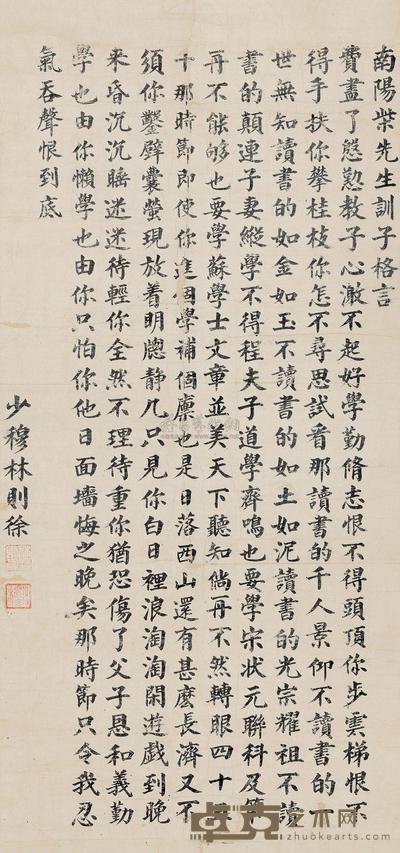 南陽柴先生訓子格言
費盡了慇懃教子心激不起好學勤脩志恨不得頭頂你步雲梯恨不
得手扶你攀桂枝你怎不尋思試看那讀書的千人景仰不讀書的
世無知讀書的如金如玉不讀書的如土如泥讀書的光宗耀祖不讀
書的顛連子妻縱學不得程夫子道學齊鳴也要學宋狀元聯科及第
再不能够也要學蘇學士文章並美天下聽知倘再不然轉眼四十
十那時節即使你進個學補個廩也是日落西山還有甚麼長濟又不
須你鑿壁囊螢現放着明牕静几只見你白日裡浪淘淘閑遊戲到晚
來昏沉沉睡迷迷待輕你全然不理待重你猶恐傷了父子恩和義勤
學也由你懶學也由你只怕你他日面墻悔之晚矣那時節只令我忍
氣吞聲恨到底
少穆林則徐
卓克艺术网
zhuokearts.com